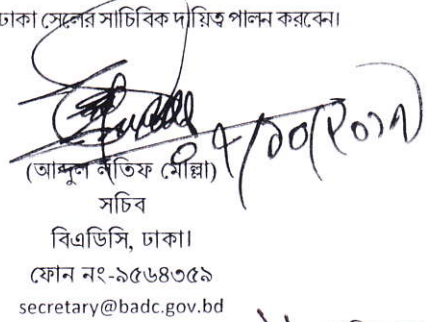 ঢাকা সেলের সাচিবিক দায়িত্ব পালন করবেন।
(আব্দুল লতিফ মোল্লা)
সচিব
বিএডিসি, ঢাকা।
ফোন নং-৯৫৬৪৩৫৯
secretary@badc.gov.bd